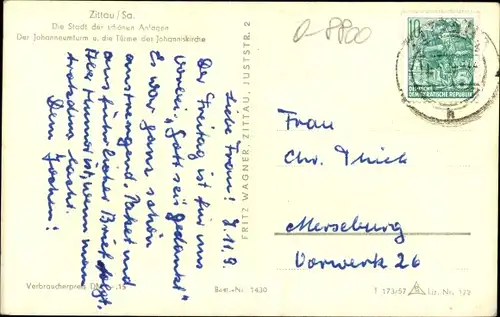 Zittau/Sa.
Die Stadt der schönen Anlagen
Der Johanneumturm u. die Türme des Johanniskirche
a-8800
10
DEUTSCHE
DEMOKRATISCHE REPUBLIK
Liebe Frau! 9.11.9.
Der Freitag ist für uns
vorbei, "Gott sei gedankt"
Es war ganz schön
anstrengend. Paket und
ausführlicher Brief folgt.
Humor ist, wenn man
trotzdem lacht.
Dein Jochen!
FRITZ WAGNER, ZITTAU, JUSTSTR. 2
Frau
Chr. Thick
Merseburg
Vorwerk 26
Verbraucherpreis DM -.15
Best.-Nr. 1430
T 173/57 Liz. Nr. 172